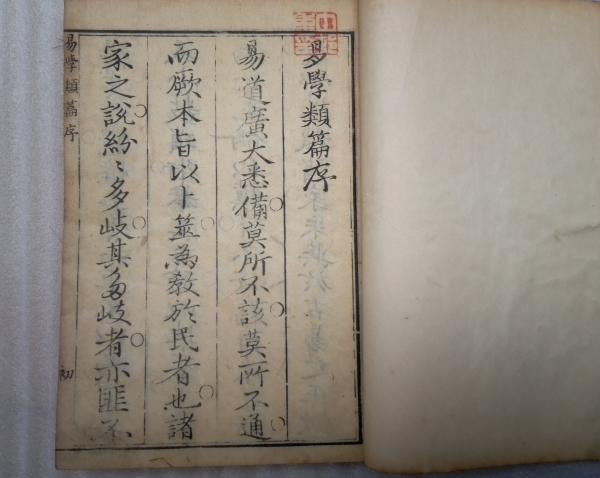 易學類篇序
易道廣大悉備莫所不該莫所不通
而厥本旨以卜筮為教於民者也諸
家之說紛〻多岐其多岐者亦匪不
易學類篇序